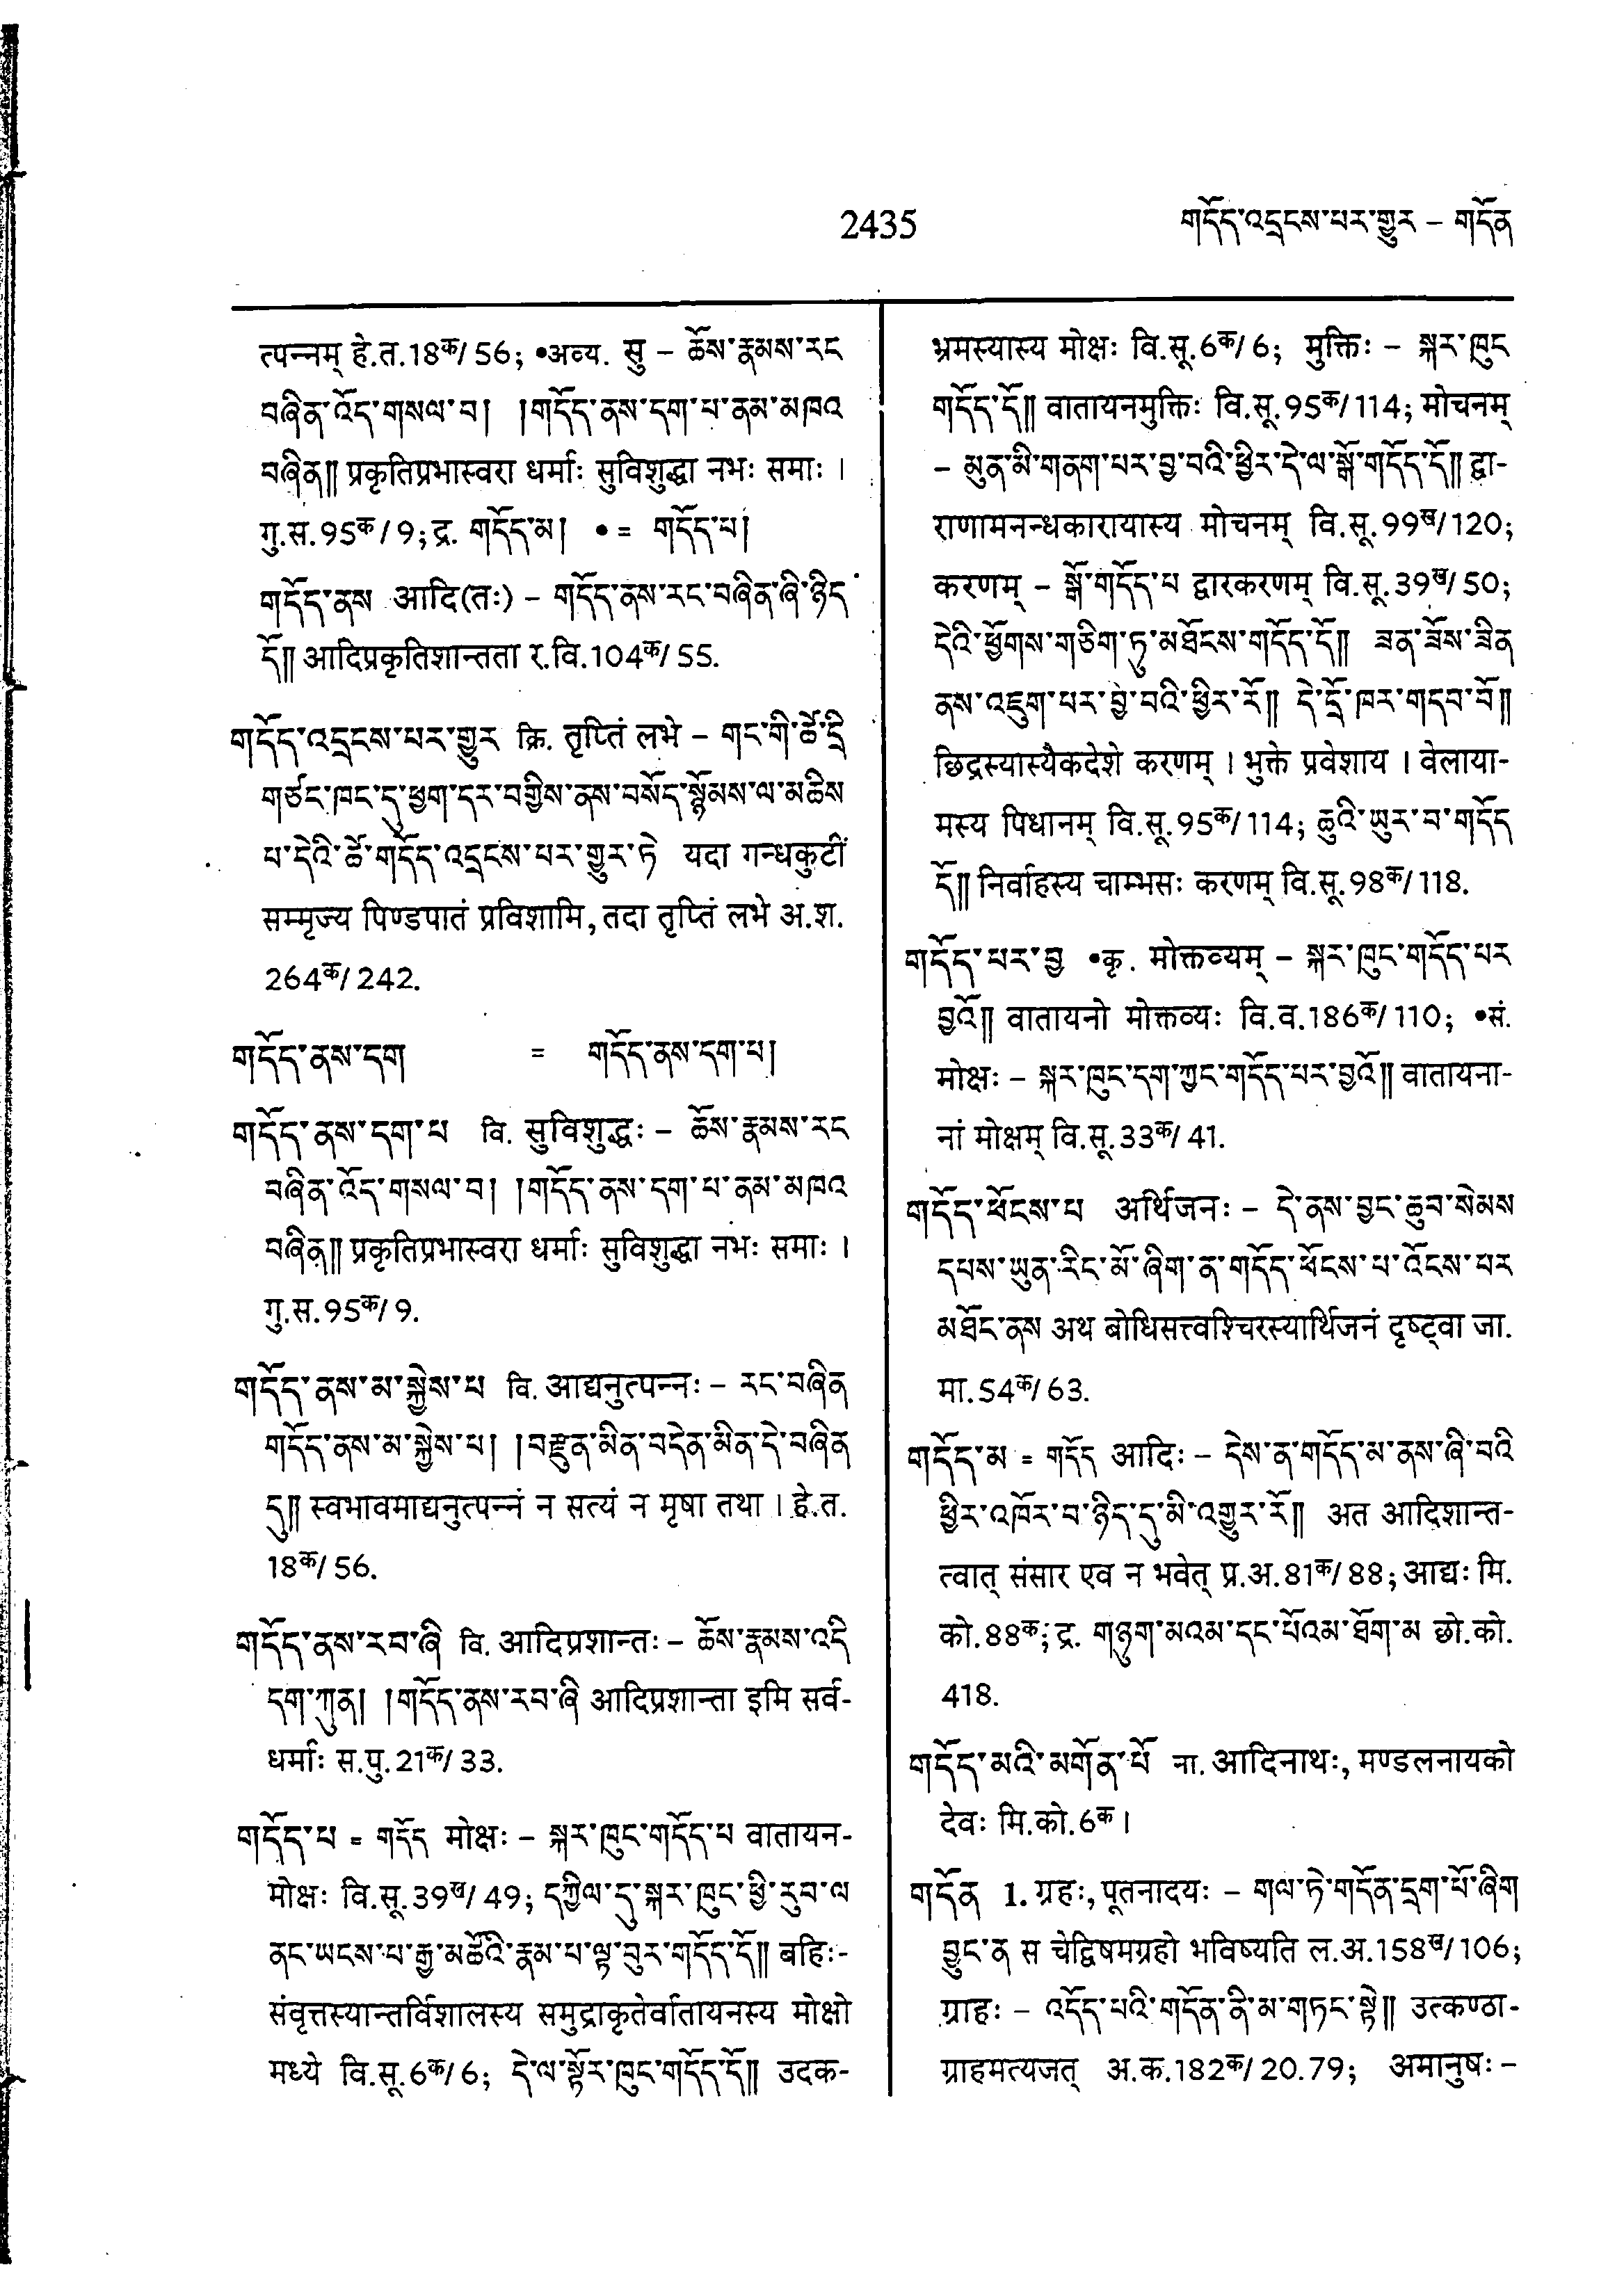 2435
གདོད་འདྲངས་པར་གྱུར – གདོན
त्पन्नम् हे.त.18क/56; •अव्य. सु – ཆོས་རྣམས་རང
བཞིན་འོད་གསལ་བ། །གདོད་ནས་དག་པ་ནམ་མཁའ
བཞིན༎ प्रकृतिप्रभास्वरा धर्माः सुविशुद्धा नभः समाः ।
गु.स.95क/9; द्र. གདོད་མ། • = གདོད་པ།
གདོད་ནས आदि(तः) – གདོད་ནས་རང་བཞིན་ཞི་ཉིད
དོ༎ आदिप्रकृतिशान्तता र.वि.104क/55.
གདོད་འདྲངས་པར་གྱུར क्रि. तृप्तिं लभे – གང་གི་ཚེ་དྲི
གཙང་ཁང་དུ་ཕྱག་དར་བགྱིས་ནས་བསོད་སྙོམས་ལ་མཆིས
པ་དེའི་ཚེ་གདོད་འདྲངས་པར་གྱུར་ཏེ यदा गन्धकुटीं
सम्मृज्य पिण्डपातं प्रविशामि, तदा तृप्तिं लभे अ.श.
264क/242.
གདོད་ནས་དག = གདོད་ནས་དག་པ།
གདོད་ནས་དག་པ वि. सुविशुद्धः – ཆོས་རྣམས་རང
བཞིན་འོད་གསལ་བ། །གདོད་ནས་དག་པ་ནམ་མཁའ
བཞིན༎ प्रकृतिप्रभास्वरा धर्माः सुविशुद्धा नभः समाः ।
गु.स.95क/9.
གདོད་ནས་མ་སྐྱེས་པ वि. आद्यनुत्पन्नः – རང་བཞིན
གདོད་ནས་མ་སྐྱེས་པ། །བརྫུན་མིན་བདེན་མིན་དེ་བཞིན
དུ༎ स्वभावमाद्यनुत्पन्नं न सत्यं न मृषा तथा । हे.त.
18क/56.
གདོད་ནས་རབ་ཞི वि. आदिप्रशान्तः – ཆོས་རྣམས་འདི
དག་ཀུན། །གདོད་ནས་རབ་ཞི आदिप्रशान्ता इमि सर्व-
धर्माः स.पु.21क/33.
གདོད་པ = གདོད मोक्षः – སྐར་ཁུང་གདོད་པ वातायन-
मोक्षः वि.सू.39ख/49; དཀྱིལ་དུ་སྐར་ཁུང་ཕྱི་རུབ་ལ
ནང་ཡངས་པ་རྒྱ་མཚོའི་རྣམ་པ་ལྟ་བུར་གདོད་དོ༎ बहिः-
संवृत्तस्यान्तर्विशालस्य समुद्राकृतेर्वातायनस्य मोक्षो
मध्ये वि.सू.6क/6; དེ་ལ་སྟོར་ཁུང་གདོད་དོ༎ उदक-
भ्रमस्यास्य मोक्षः वि.सू.6क/6; मुक्तिः – སྐར་ཁུང
གདོད་དོ༎ वातायनमुक्तिः वि.सू.95क/114; मोचनम्
– མུན་མི་གནག་པར་བྱ་བའི་ཕྱིར་དེ་ལ་སྒོ་གདོད་དོ༎ द्वा-
राणामनन्धकारायास्य मोचनम् वि.सू.99ख/120;
करणम् – སྒོ་གདོད་པ द्वारकरणम् वि.सू.39ख/50;
དེའི་ཕྱོགས་གཅིག་ཏུ་མཐོངས་གདོད་དོ༎ ཟན་ཟོས་ཟིན
ནས་འཇུག་པར་བྱེ་བའི་ཕྱིར་རོ༎ དེ་དྲོ་ཁར་གདབ་བོ༎
छिद्रस्यास्यैकदेशे करणम् । भुक्ते प्रवेशाय । वेलाया-
मस्य पिधानम् वि.सू.95क/114; ཆུའི་ཡུར་བ་གདོད
དོ༎ निर्वाहस्य चाम्भसः करणम् वि.सू.98क/118.
གདོད་པར་བྱ •कृ. मोक्तव्यम् – སྐར་ཁུང་གདོད་པར
བྱའོ༎ वातायनो मोक्तव्यः वि.व.186क/110; •सं.
मोक्षः – སྐར་ཁུང་དག་ཀྱང་གདོད་པར་བྱའོ༎ वातायना-
नां मोक्षम् वि.सू.33क/41.
གདོད་ཕོངས་པ अर्थिजनः – དེ་ནས་བྱང་ཆུབ་སེམས
དཔས་ཡུན་རིང་མོ་ཞིག་ན་གདོད་ཕོངས་པ་འོངས་པར
མཐོང་ནས अथ बोधिसत्त्वश्चिरस्यार्थिजनं दृष्ट्वा जा.
मा.54क/63.
གདོད་མ = གདོད आदिः – དེས་ན་གདོད་མ་ནས་ཞི་བའི
ཕྱིར་འཁོར་བ་ཉིད་དུ་མི་འགྱུར་རོ༎ अत आदिशान्त-
त्वात् संसार एव न भवेत् प्र.अ.81क/88; आद्यः मि.
को.88क; द्र. གཉུག་མའམ་དང་པོའམ་ཐོག་མ छो.को.
418.
གདོད་མའི་མགོན་པོ ना. आदिनाथः, मण्डलनायको
देवः मि.को.6क ।
གདོན 1. ग्रहः, पूतनादयः – གལ་ཏེ་གདོན་དྲག་པོ་ཞིག
བྱུང་ན स चेद्विषमग्रहो भविष्यति ल.अ.158ख/106;
ग्राहः – འདོད་པའི་གདོན་ནི་མ་གཏང་སྟེ༎ उत्कण्ठा-
ग्राहमत्यजत् अ.क.182क/20.79; अमानुषः –